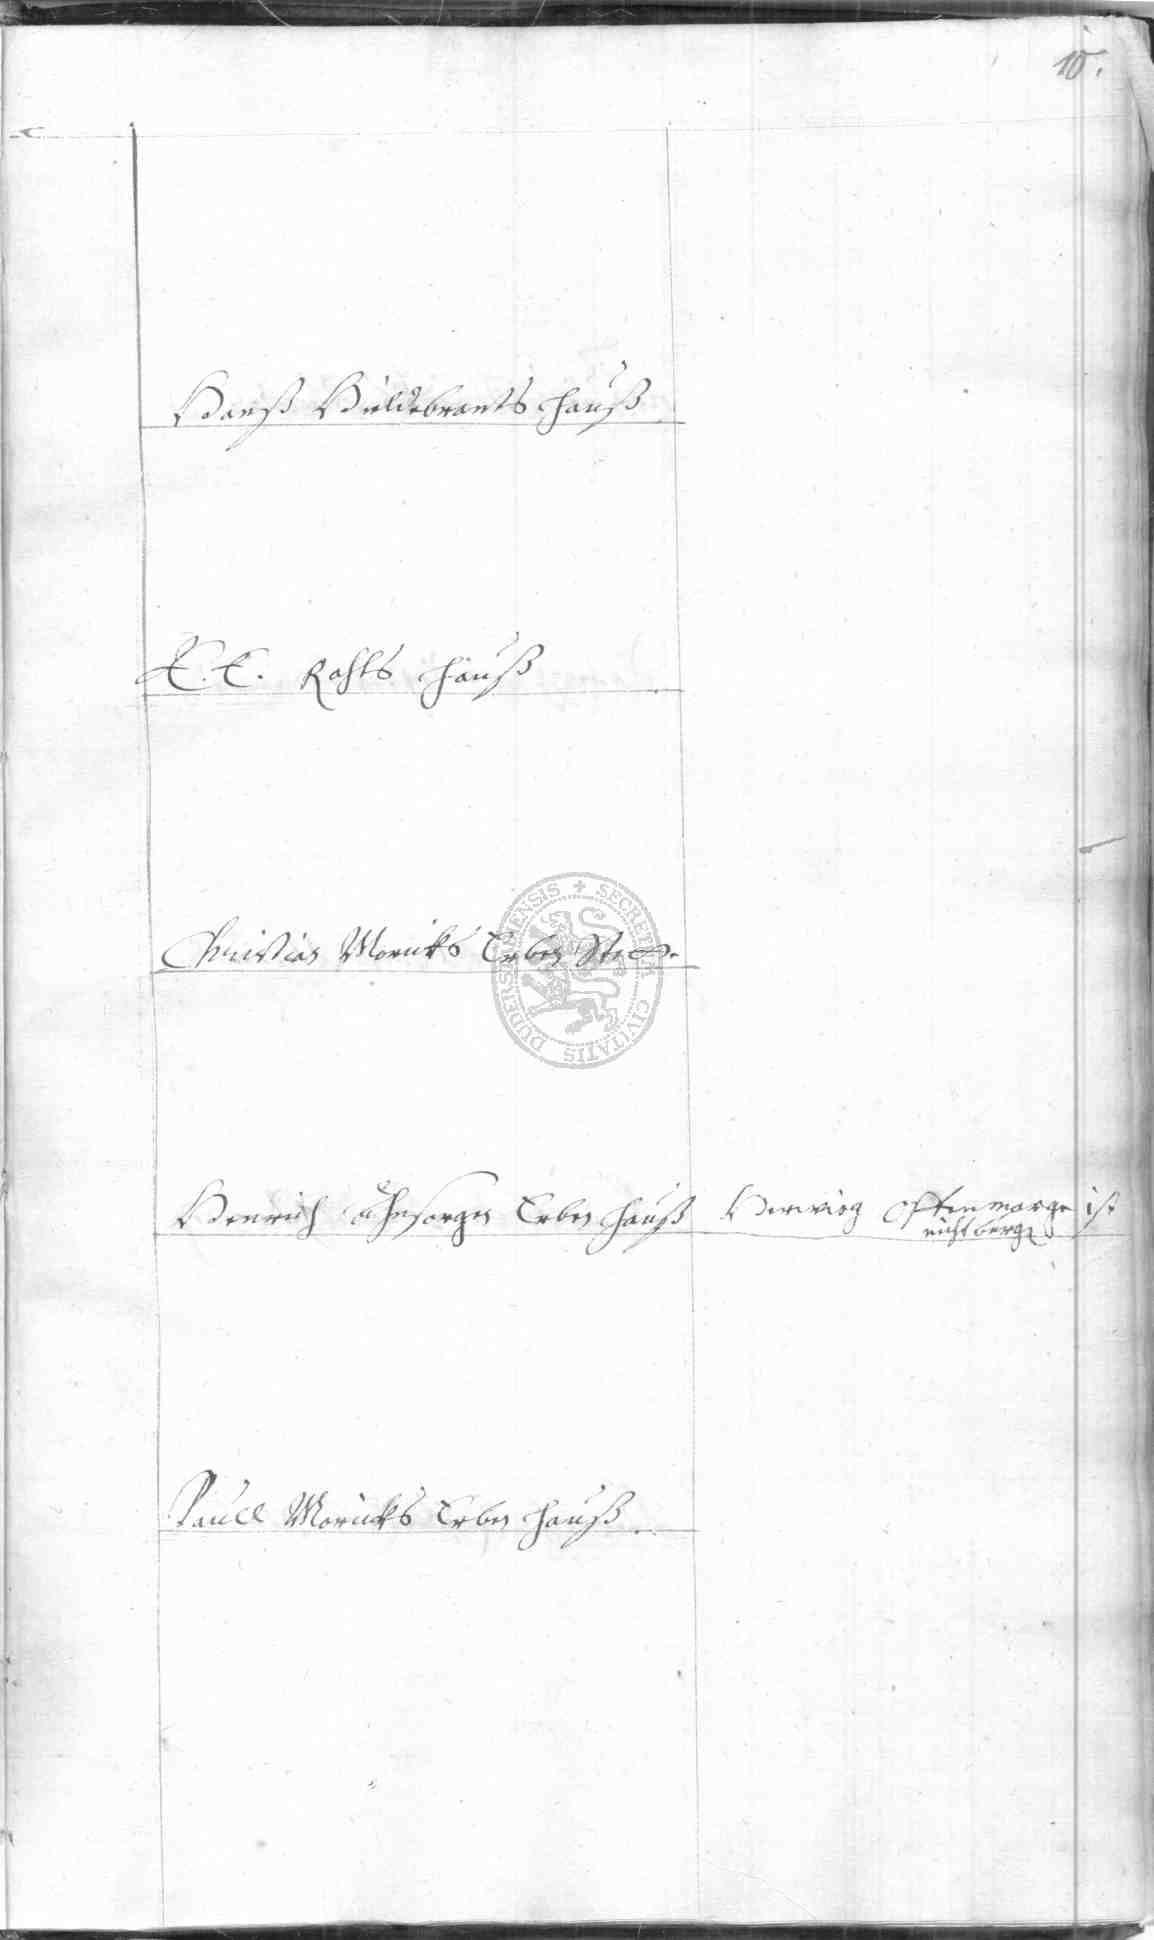 10.
Hanß Hildebrants hauß
E. E. Rahts hauß
Christian Moricks Erben
Henrich Ohnsorgen Erben hauß Herwig Offenmarge ist
nicht berg
Paull Moricks Erben hauß
SECRETVM CIVITATIS DUDERSTADENSIS